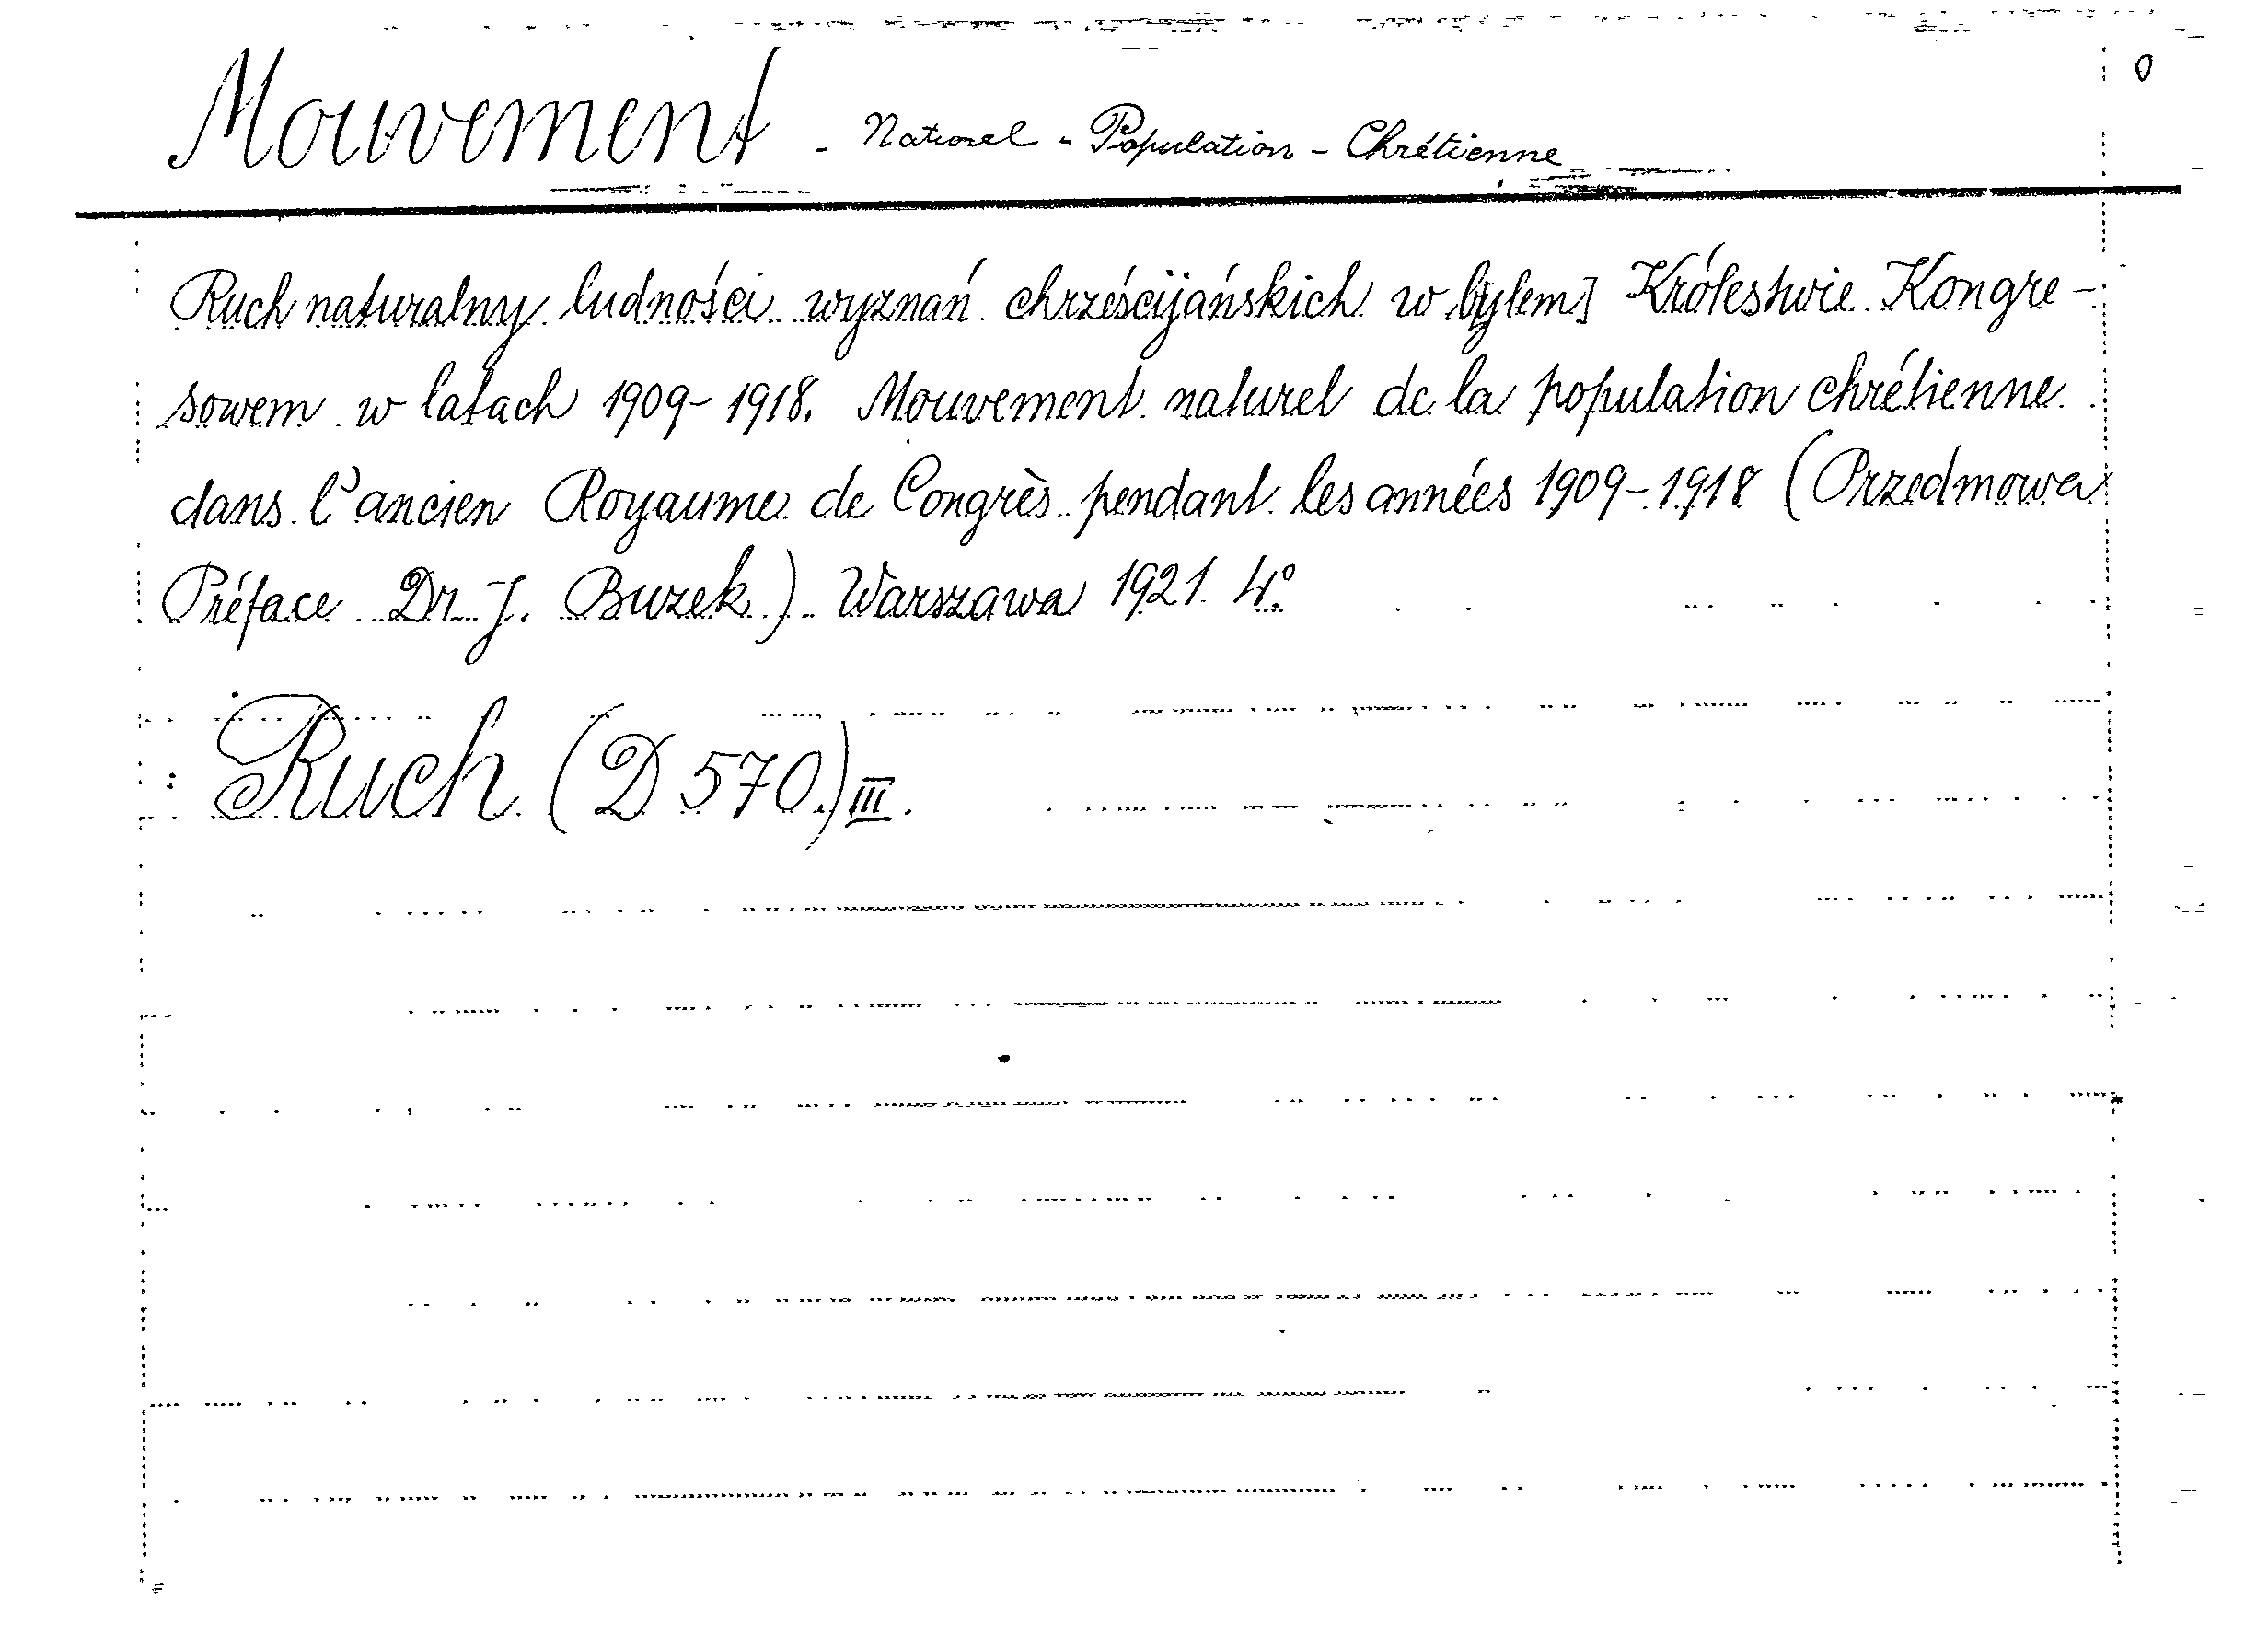 Mouvement - Naturel - Population - Chrétienne
Ruch naturalny ludności wyznań chrześcijańskich w byłem] Królestwie Kongre-
sowem w latach 1909-1918. Mouvement naturel de la population chrétienne
dans l'ancien Royaume de Congrès pendant les années 1909-1918 (Przedmowa
Préface Dr. J. Buzek) Warszawa 1921. 4º
: Ruch (D 570.) III.